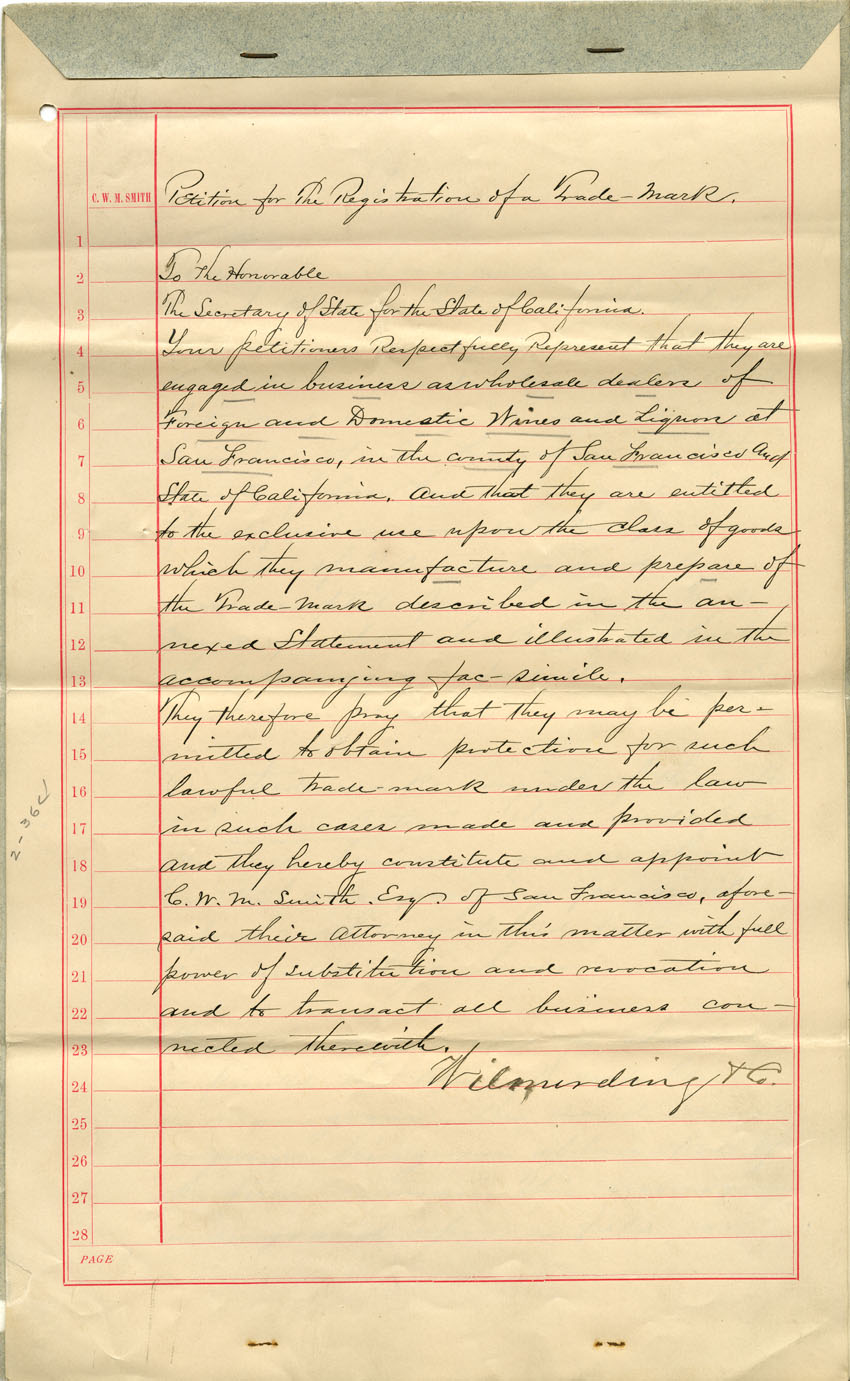 C. W. M. SMITH Petition for The Registration of a Trade-Mark.
1
2 To The Honorable
3 The Secretary of State for the State of California.
4 Your petitioners Respectfully Represent that they are
5 engaged in business as wholesale dealers of
6 Foreign and Domestic Wines and Liquors at
7 San Francisco, in the county of San Francisco And
8 State of California. And that they are entitled
9 to the exclusive use upon the class of goods
10 which they manufacture and prepare of
11 the Trade-Mark described in the an-
12 nexed Statement and illustrated in the
13 accompanying fac-simile.
14 They therefore pray that they may be per-
15 mitted to obtain protection for such
16 lawful trade-mark under the law
17 in such cases made and provided
18 and they hereby constitute and appoint
19 C. W. M. Smith. Esq. of San Francisco, afore-
20 said their Attorney in this matter with full
21 power of substitution and revocation
22 and to transact all business con-
23 nected therewith.
24 Wilmerding & Co.
25
26
27
28
PAGE
2-36